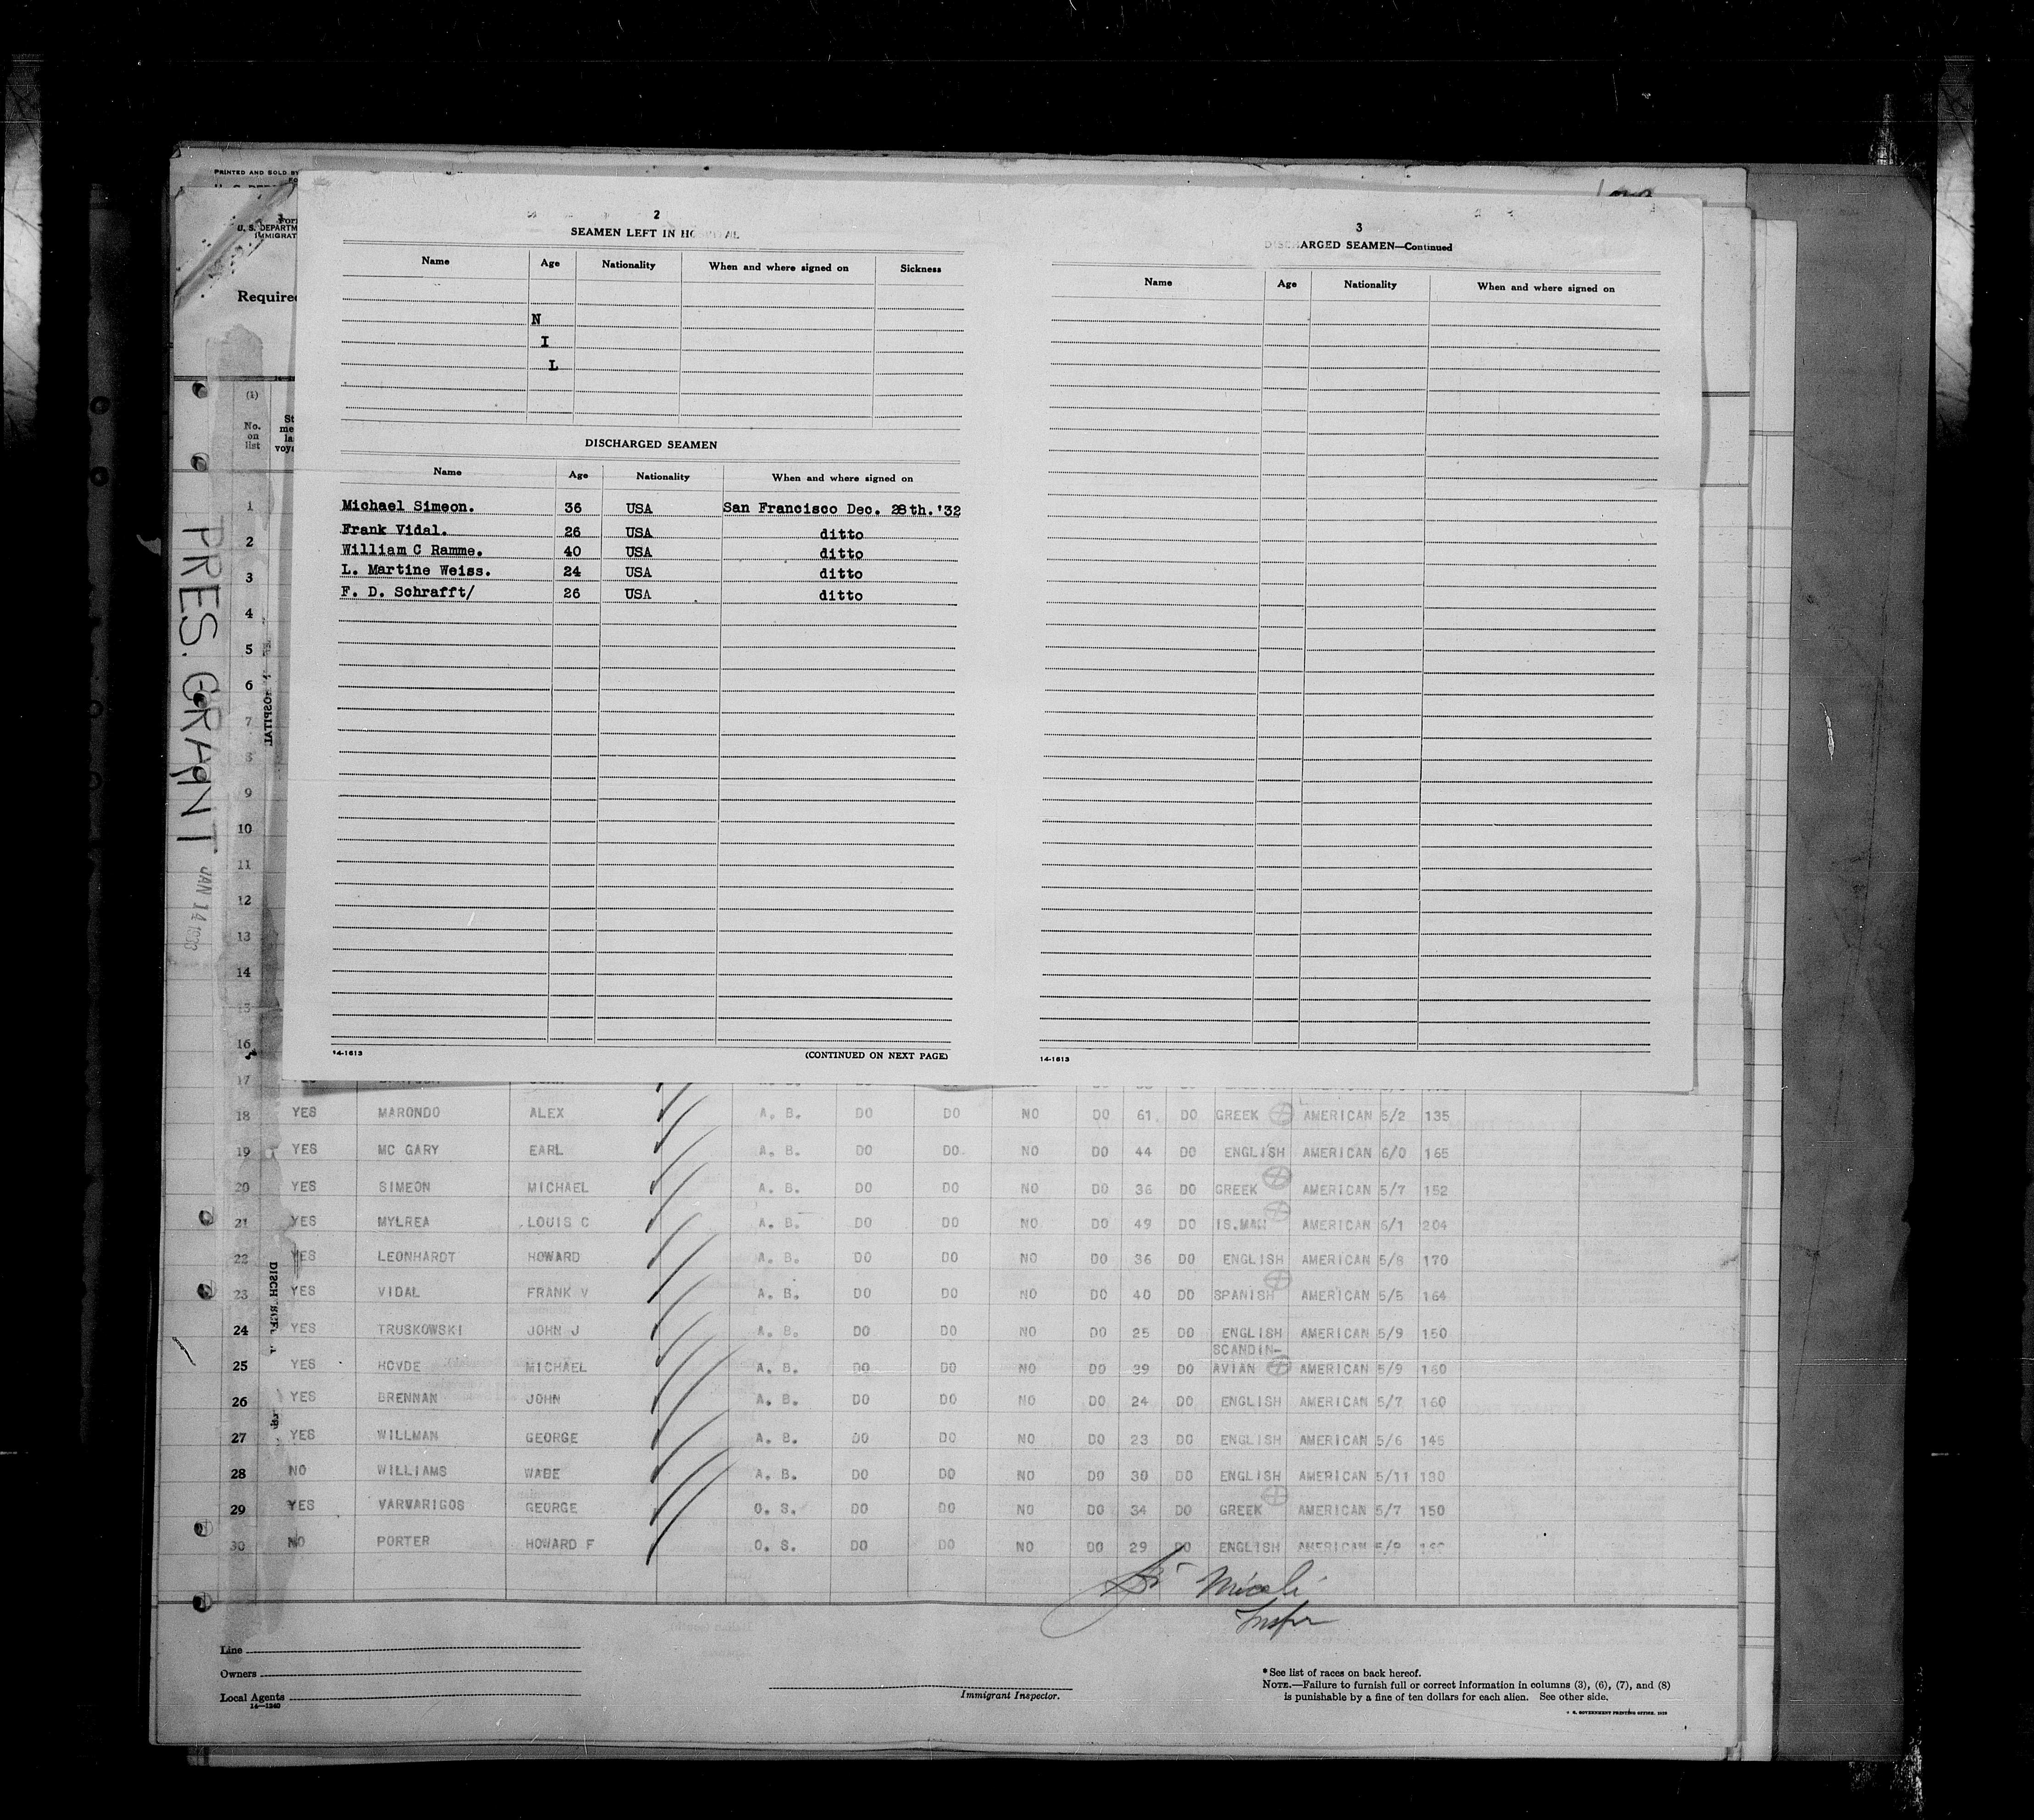 PRINTED AND SOLD BY
U. S. DEPARTM
IMMIGRAT
Require
(1)
No.
on
list
PRES. GRANT
JAN 14 1933
2
SEAMEN LEFT IN HOSPITAL
Name Age Nationality When and where signed on Sickness
N
I
L
DISCHARGED SEAMEN
Name Age Nationality When and where signed on
Michael Simeon. 36 USA San Francisco Dec. 28th.'32
Frank Vidal. 26 USA ditto
William C Ramme. 40 USA ditto
L. Martine Weiss. 24 USA ditto
F. D. Schrafft/ 26 USA ditto
14-1613
(CONTINUED ON NEXT PAGE)
3
DISCHARGED SEAMEN—Continued
Name Age Nationality When and where signed on
14-1613
1
2
3
4
5
6
7
8
9
10
11
12
13
14
15
16
17
18 YES MARONDO ALEX A. B. DO DO NO DO 61 DO GREEK AMERICAN 5/2 135
19 YES MC GARY EARL A. B. DO DO NO DO 44 DO ENGLISH AMERICAN 6/0 165
20 YES SIMEON MICHAEL A. B. DO DO NO DO 36 DO GREEK AMERICAN 5/7 152
21 YES MYLREA LOUIS C A. B. DO DO NO DO 49 DO IS.MAN AMERICAN 6/1 204
22 YES LEONHARDT HOWARD A. B. DO DO NO DO 36 DO ENGLISH AMERICAN 5/8 170
23 YES VIDAL FRANK V A. B. DO DO NO DO 40 DO SPANISH AMERICAN 5/5 164
24 YES TRUSKOWSKI JOHN J A. B. DO DO NO DO 25 DO ENGLISH AMERICAN 5/9 150
25 YES HOVDE MICHAEL A. B. DO DO NO DO 39 DO SCANDIN-
AVIAN AMERICAN 5/9 160
26 YES BRENNAN JOHN A. B. DO DO NO DO 24 DO ENGLISH AMERICAN 5/7 160
27 YES WILLMAN GEORGE A. B. DO DO NO DO 23 DO ENGLISH AMERICAN 5/6 145
28 NO WILLIAMS WADE A. B. DO DO NO DO 30 DO ENGLISH AMERICAN 5/11 190
29 YES VARVARIGOS GEORGE O. S. DO DO NO DO 34 DO GREEK AMERICAN 5/7 150
30 NO PORTER HOWARD F O. S. DO DO NO DO 29 DO ENGLISH AMERICAN
Inspr
Line
Owners
Local Agents
14—1240
Immigrant Inspector.
*See list of races on back hereof.
NOTE.—Failure to furnish full or correct information in columns (3), (6), (7), and (8)
is punishable by a fine of ten dollars for each alien. See other side.